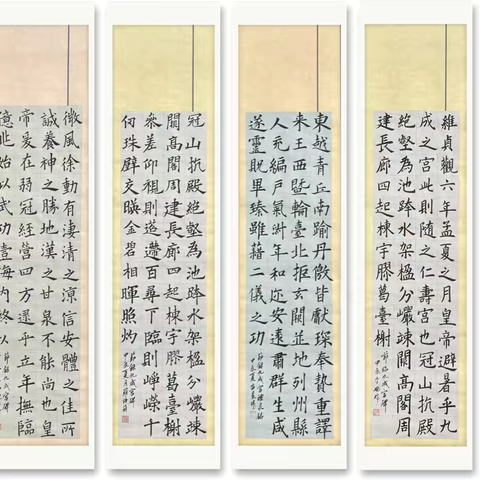 維貞觀六年孟夏之月皇帝避暑乎九
成之宮此則隨之仁壽宮也冠山抗殿
絶壑為池跨水架楹分巖竦闕高閣周
建長廊四起棟宇膠葛臺榭
節臨九成宮碑
甲辰
東越青丘南踰丹徼皆獻琛奉贄重譯
来王西暨輪臺北拒玄闕並地列州縣
人充編戶氣淑年和迩安遠肅群生咸
遂靈貺畢臻雖藉二儀之功
節録九成宮醴泉銘
甲辰夏
冠山抗殿絶壑為池跨水架楹分巖竦
闕高閣周建長廊四起棟宇膠葛臺榭
参差仰視則迢遰百尋下臨則崢嶸千
仞珠璧交暎金碧相暉照灼
節録九成宮碑
甲辰夏月
微風徐動有淒清之涼信安體之佳所
誠養神之勝地漢之甘泉不能尚也皇
帝爰在弱冠經營四方逮乎立年撫臨
億兆始以武功壹海内終以
節録九成宮碑